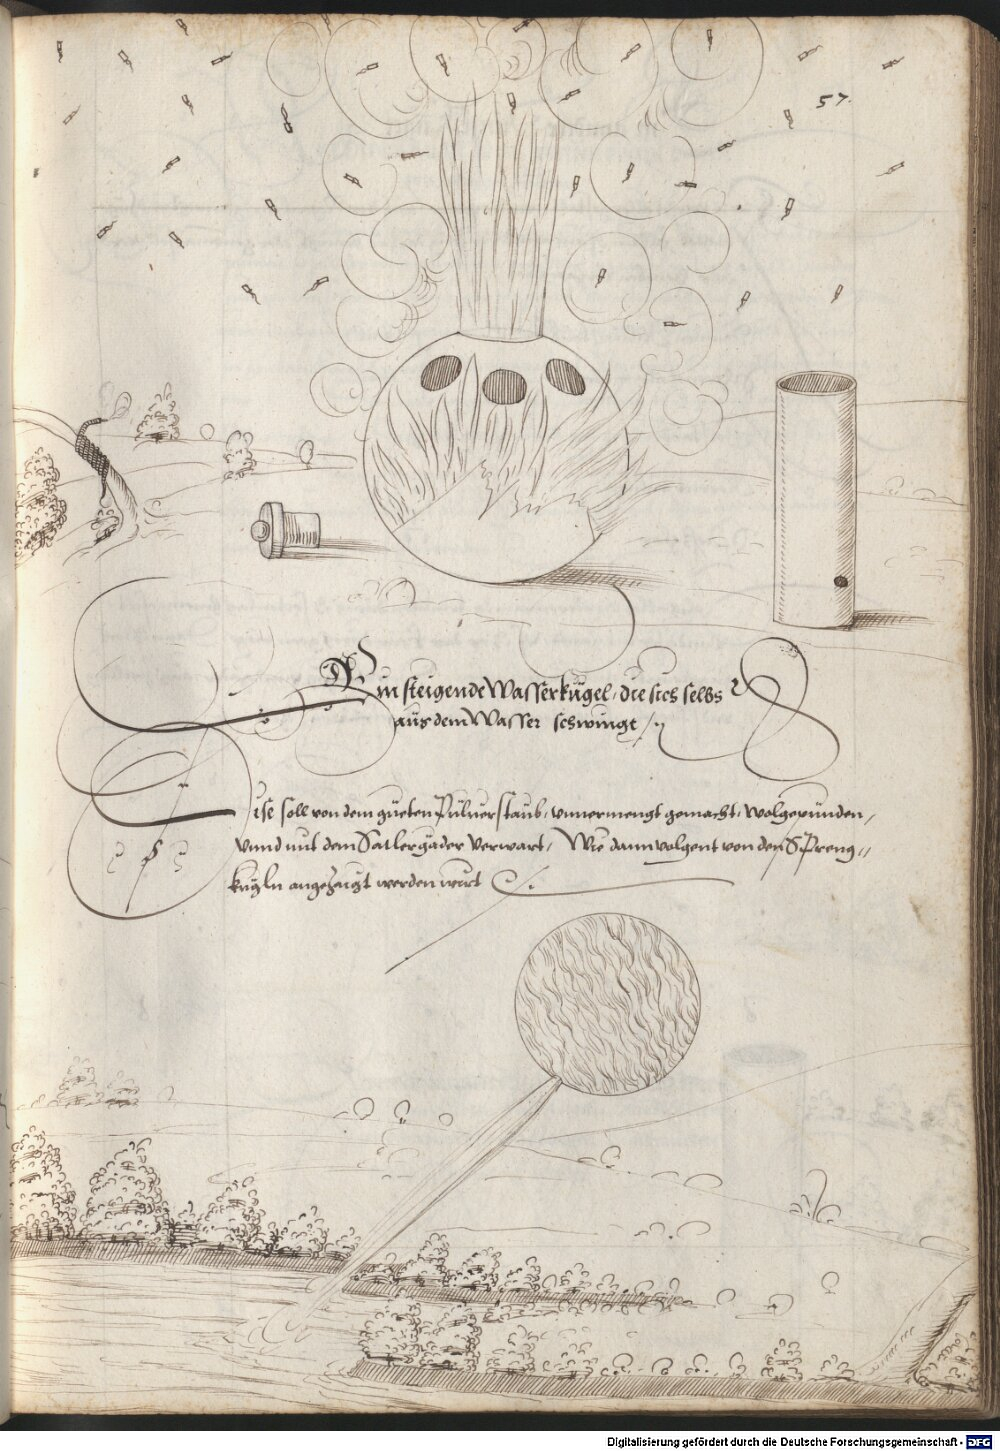 57.
Ein steigende Wasserkugel, die sich selbs
aus dem Wasser schwingt
Dise soll von dem gueten Pulverstaub, unvermengt gemacht, wolgepunden,
vnnd mit dem Satlergäder verwart, Wie dann volgent von den Spreng,,
kugln angezaigt werden wirt
Digitalisierung gefördert durch die Deutsche Forschungsgemeinschaft - DFG